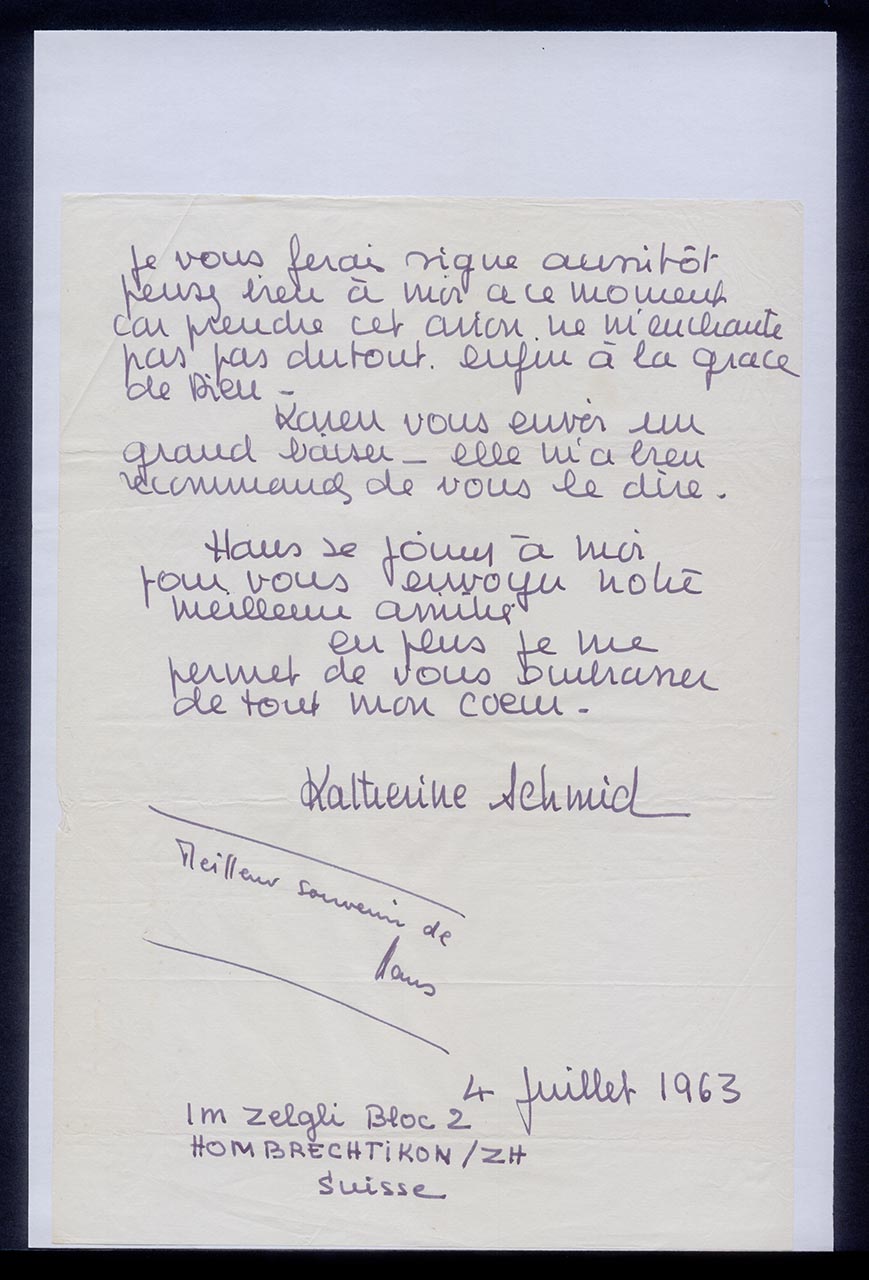 Je vous ferais signe aussitôt
pensez bien à moi a ce moment
car prendre cet avion ne m'enchante
pas pas du tout. enfin à la grace
de Dieu -
Karen vous envoi un
grand baiser - elle m'a bien
recommandez de vous le dire.
Hans se joint à moi
pour vous envoyer notre
meilleur amitié
en plus je me
permet de vous embrasser
de tout mon coeur -
Katherine Schmid
Meilleur souvenir de
Hans
4 Juillet 1963
Im Zelgli Bloc 2
HOMBRECHTIKON/ZH
Suisse